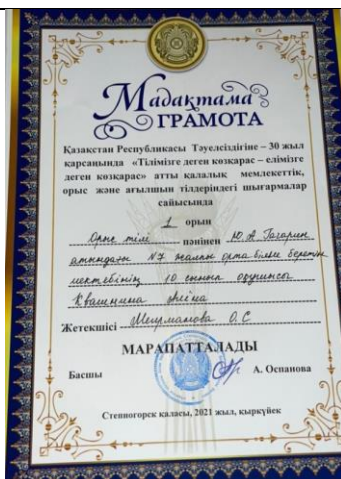 Мадақтама
ГРАМОТА
Қазақстан Республикасы Тәуелсіздігіне – 30 жыл
қарсаңында «Тілімізге деген көзқарас – елімізге
деген көзқарас» атты қалалық мемлекеттік,
орыс және ағылшын тілдеріндегі шығармалар
сайысында
1 орын
Орыс тілі пәнінен Ю.А. Гагарин
атындағы №7 жалпы орта білім беретін
мектебінің 10 сынып оқушысы
Квашнина
Жетекшісі О.С
МАРАПАТТАЛАДЫ
Басшы А. Оспанова
Степногорск қаласы, 2021 жыл, қыркүйек